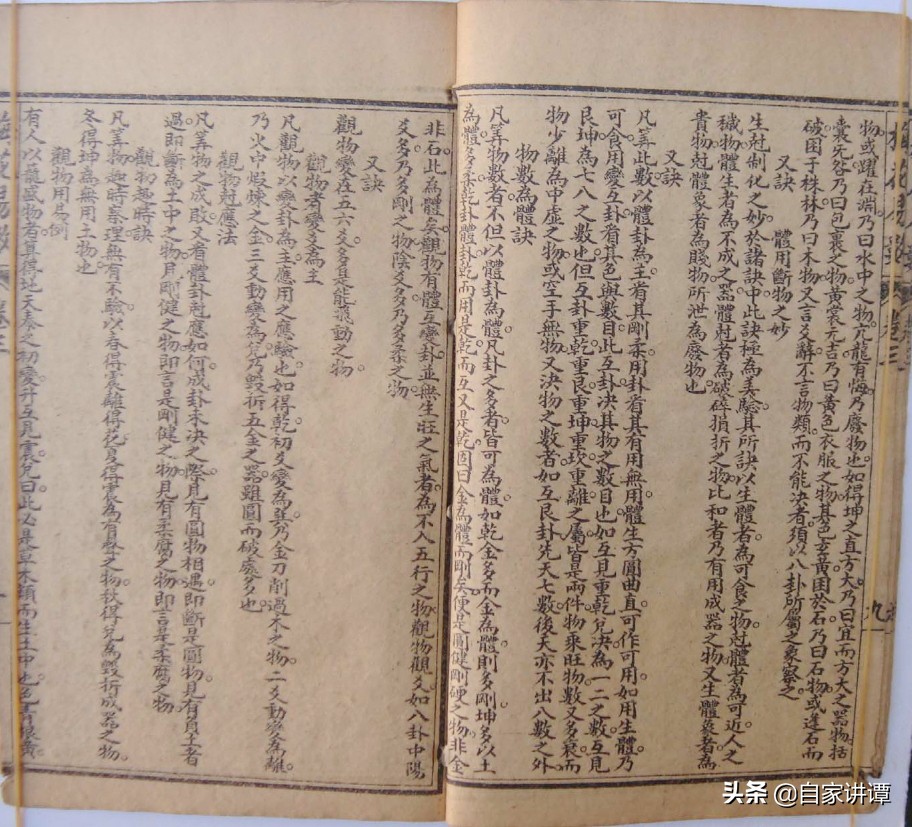 物或躍在淵乃曰水中之物亢龍有悔乃廢物也如得坤之直方大乃曰宜而方大之器物括
囊无咎乃曰包裹之物黃裳元吉乃曰黃色衣服之物其色玄黃困於石乃曰石物或逢石而
破困于株林乃曰木物又言爻辭不言物類而不能決者須以八卦所屬之象察之
又訣 體用斷物之妙
生尅制化之妙於諸訣中此訣極為美驗其所訣以生體者為可食之物尅體者為可近人之
穢物體生者為不成之器體尅者為破碎損折之物比和者乃有用成器之物又生體象者為
貴物尅體象者為賤物所泄為廢物也
又訣
凡筭此數以體卦為主看其剛柔用卦看其有用無用體生方圓曲直可作可用如用生體乃
可食用變互卦看其色與數目此互卦決其物之數目也如互見重乾兌決為一二之數互見
艮坤為七八之數也但互卦重乾重艮重坤重坎重離之屬皆是兩件物乘旺物數又多衰而
物少離為中虛之物或空手無物又決物之數者如互艮卦先天七數後天亦不出八數之外
物數為體訣
凡筭物數者不但以體卦為體凡卦之多者皆可為體如乾金多而金為體則多剛坤多以土
為體多柔乾卦體卦乾而用是乾而互又是乾固曰金為體而剛矣便是圓健剛硬之物非金
非石此為體矣觀物有體互變卦並無生旺之氣者為不入五行之物觀物觀爻如八卦中陽
爻多乃多剛之物陰爻多乃多柔之物
又訣
觀物變在五六爻多是能飛動之物
觀物看變爻為主
凡觀物以變卦為主應用之應驗也如得乾初爻變為巽乃金刀削過木之物二爻動變為離
乃火中煅煉之金三爻動變為兌乃毀折五金之器雖圓而破處多也
觀物尅應法
凡筭物之成敗又看體卦尅應如何成卦未決之際見有圓物相遇即斷是圓物見有負土者
遇即斷為土中之物見剛健之物即言是剛健之物見有柔腐之物即言是柔腐之物
觀物趣時訣
凡筭物趣時察理無有不驗以春得震離得花夏得震為有聲之物秋得兌為毀折成器之物
冬得坤為無用土物也
觀物用易例
有人以籠盛物者算得地天泰之初變升互見震兌曰此必是草木類而生土中也色青根黃